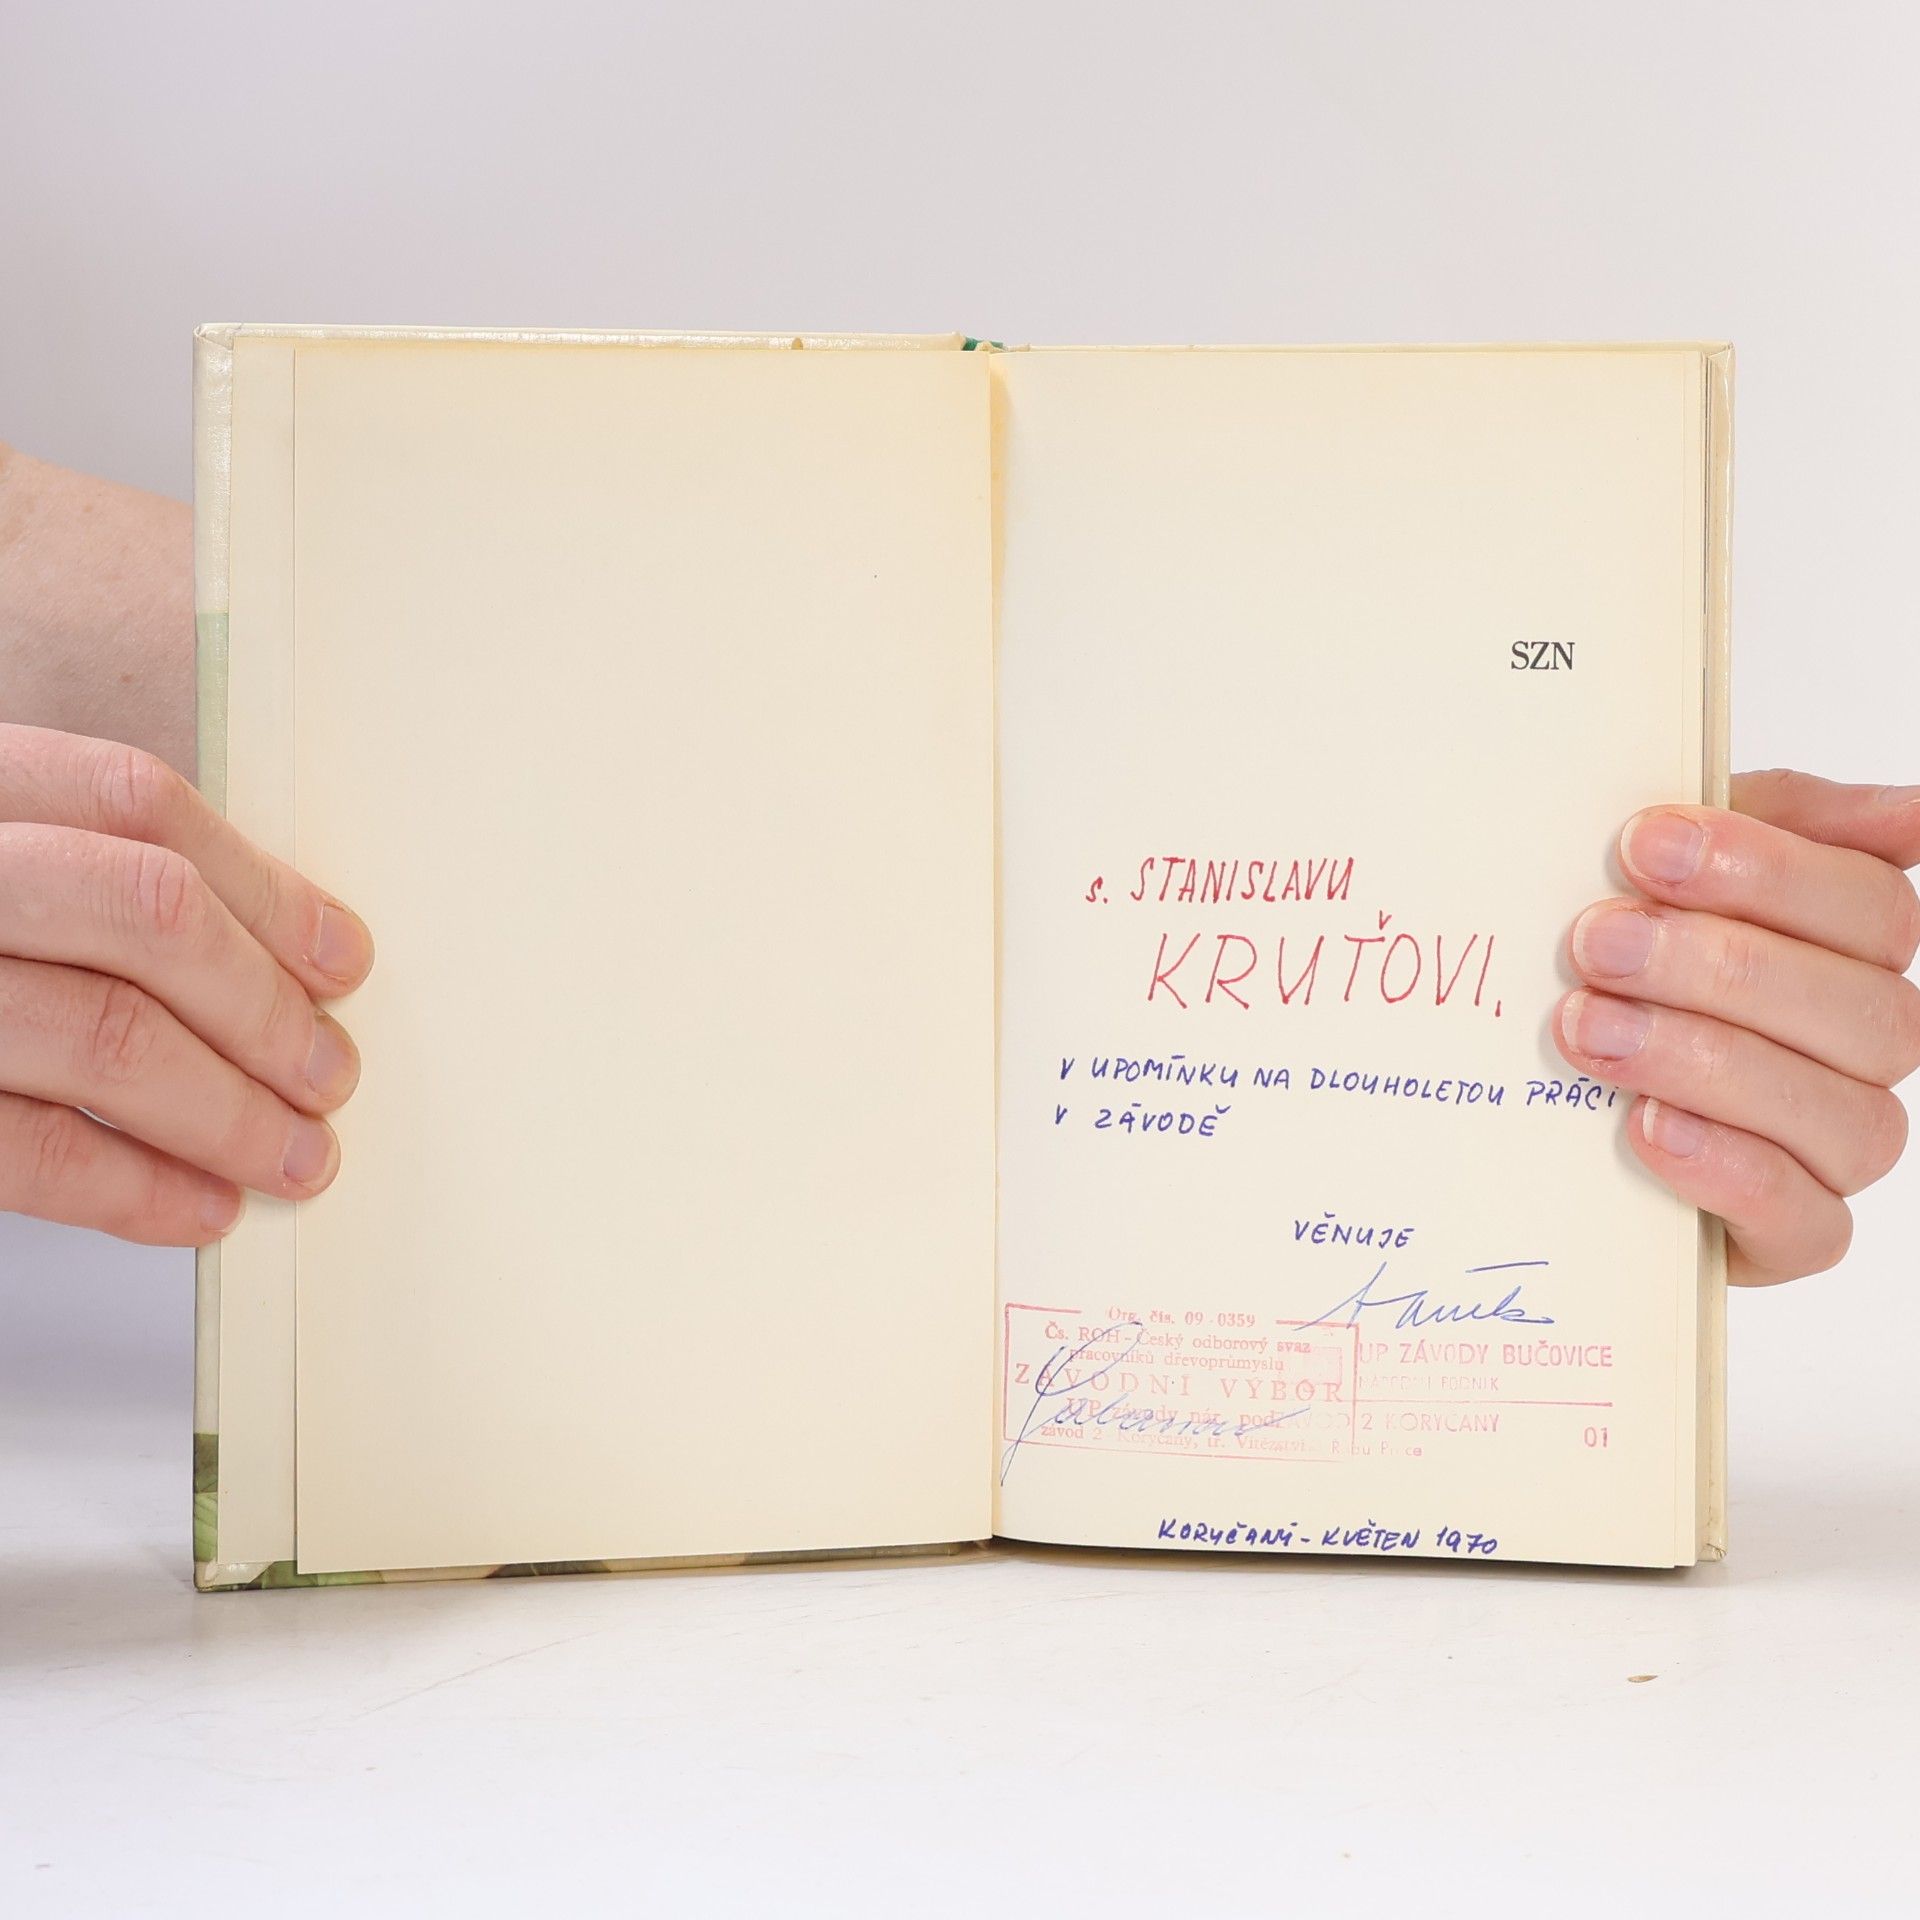 SZN
s. STANISLAVU
KRUŤOVI,
V UPOMÍNKU NA DLOUHOLETOU PRÁCI
V ZÁVODĚ
VĚNUJE
Org. čís. 09-0359
Čs. ROH - Český odborový svaz
pracovníků dřevoprůmyslu
ZÁVODNÍ VÝBOR
UP závody nár. pod.
závod 2 Koryčany, tř. Vítězství
UP ZÁVODY BUČOVICE
NÁRODNÍ PODNIK
ZÁVOD 2 KORYČANY
01
KORYČANY - KVĚTEN 1970